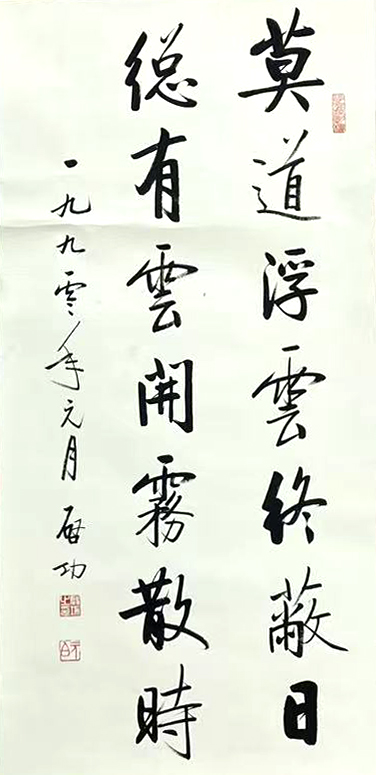 莫道浮雲終蔽日
總有雲開霧散時
一九九零年元月 啟功